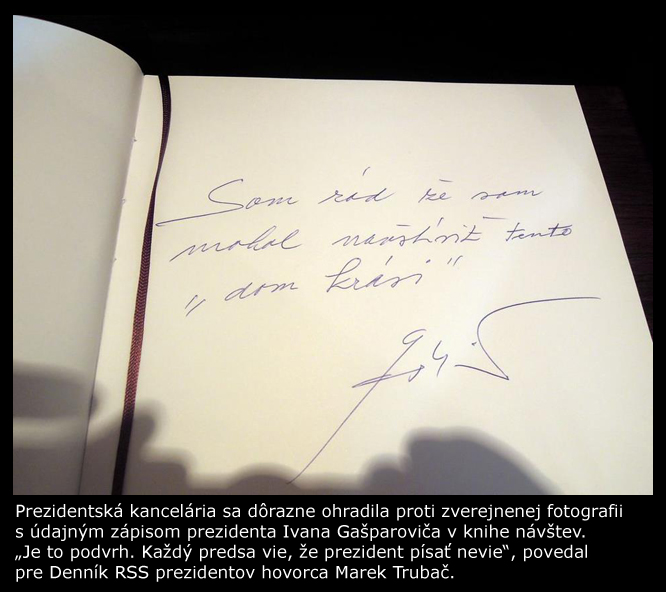 Som rád že som
mohol navštíviť tento
„dom krási“
Prezidentská kancelária sa dôrazne ohradila proti zverejnenej fotografii
s údajným zápisom prezidenta Ivana Gašparoviča v knihe návštev.
„Je to podvrh. Každý predsa vie, že prezident písať nevie“, povedal
pre Denník RSS prezidentov hovorca Marek Trubač.